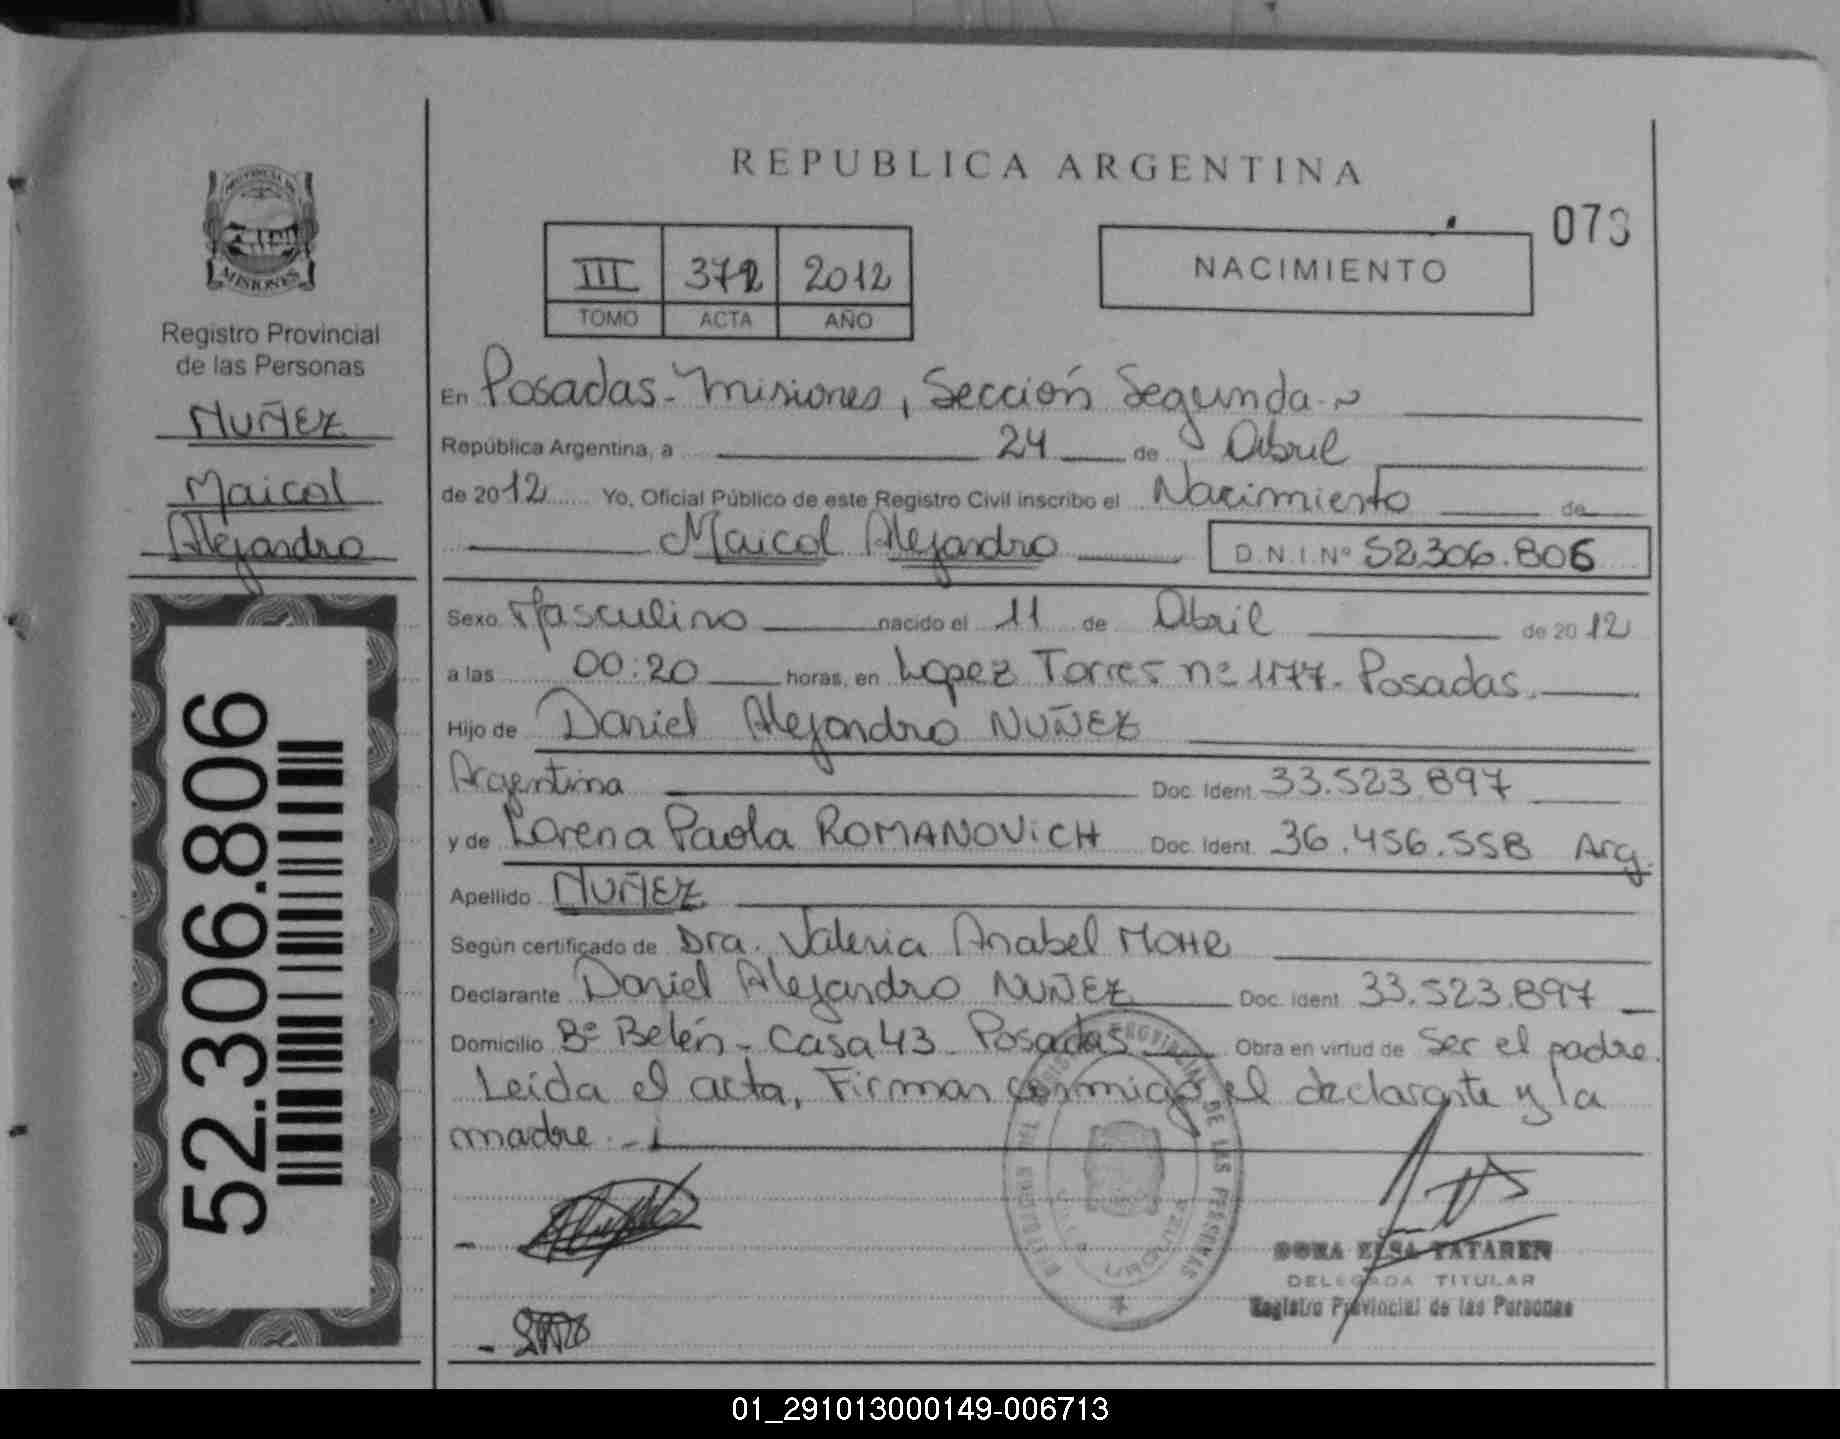 REPUBLICA ARGENTINA
073
PROVINCIA DE
MISIONES
Registro Provincial
de las Personas
MUÑEZ
Maicol
Alejandro
52.306.806
III 372 2012
TOMO ACTA AÑO
NACIMIENTO
En Posadas - Misiones, Sección Segunda.~
República Argentina, a 24 de Abril
de 2012 Yo, Oficial Público de este Registro Civil inscribo el Nacimiento de
Maicol Alejandro D.N.I.Nº 52.306.806
Sexo Masculino nacido el 11 de Abril de 2012
a las 00:20 horas, en Lopez Torres nº 1177 - Posadas.
Hijo de Daniel Alejandro NUÑEZ
Argentina Doc. Ident. 33.523.897
y de Lorena Paola ROMANOVICH Doc. Ident. 36.456.558 Arg.
Apellido NUÑEZ
Según certificado de Dra. Valeria Anabel MOHR
Declarante Daniel Alejandro NUÑEZ Doc. Ident. 33.523.897
Domicilio Bº Belén - Casa 43 - Posadas Obra en virtud de Ser el padre.
Leida el acta, Firman conmigo el declarante y la
madre.-
DORA ELSA TATAREN
DELEGADA TITULAR
Registro Provincial de las Personas
01_291013000149-006713